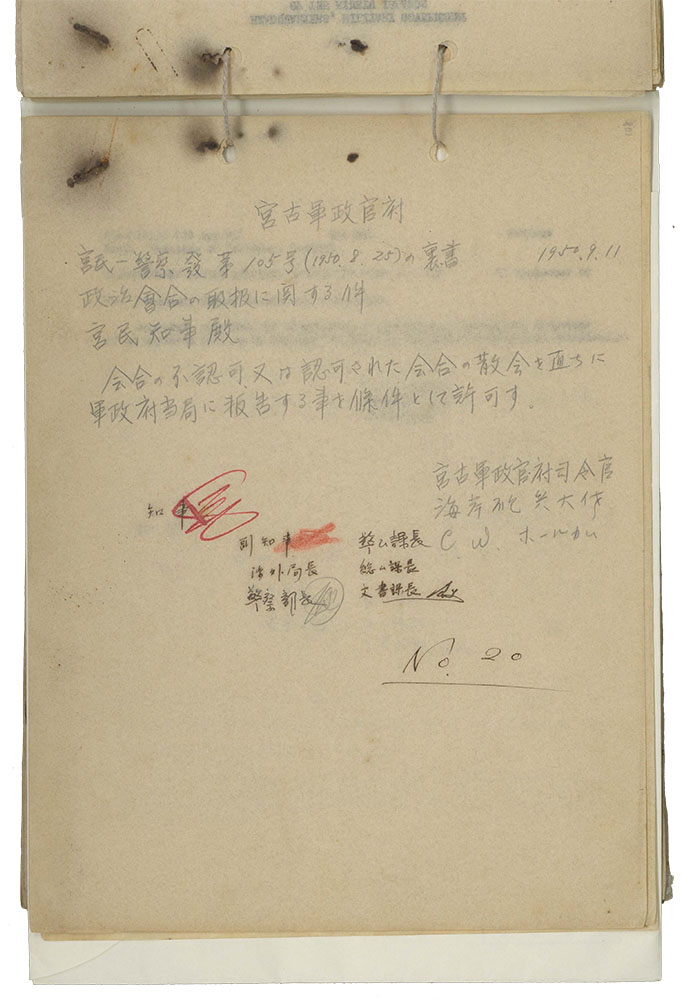 宮古軍政官府
宮民一警察發第105号(1950.8.25)の裏書 1950.9.11
政治會合の取扱に関する件
宮民知事殿
会合の不認可又は認可された会合の散会を直ちに
軍政府当局に報告する事を條件として許可す。
宮古軍政官府司令官
海岸砲兵大佐
C. W. ホールカム
知事
副知事
渉外局長
警察部長
務課長
総ム課長
文書課長
No. 20